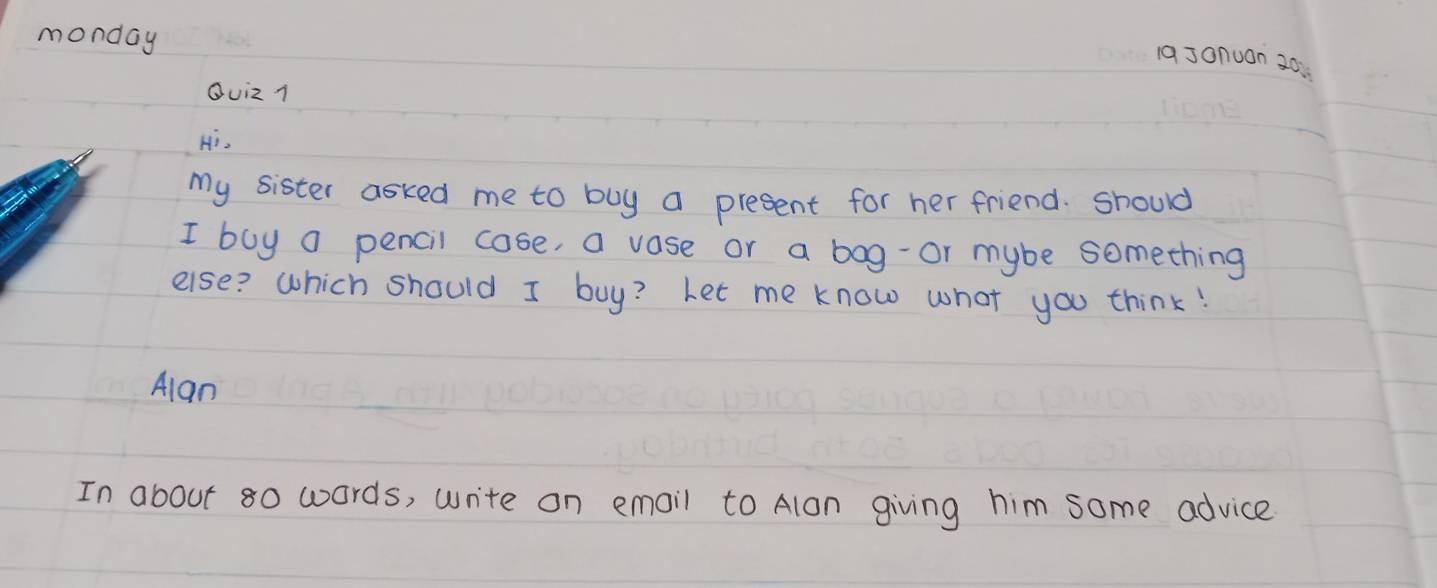 monday
19 Januari
Quiz 1
Hi,
My sister asked me to buy a present for her friend. Should
I buy a pencil case, a vase or a bag - or mybe something
else? Which should I buy? Let me know what you think!
Alan
In about 80 words, write an email to Alan giving him some advice